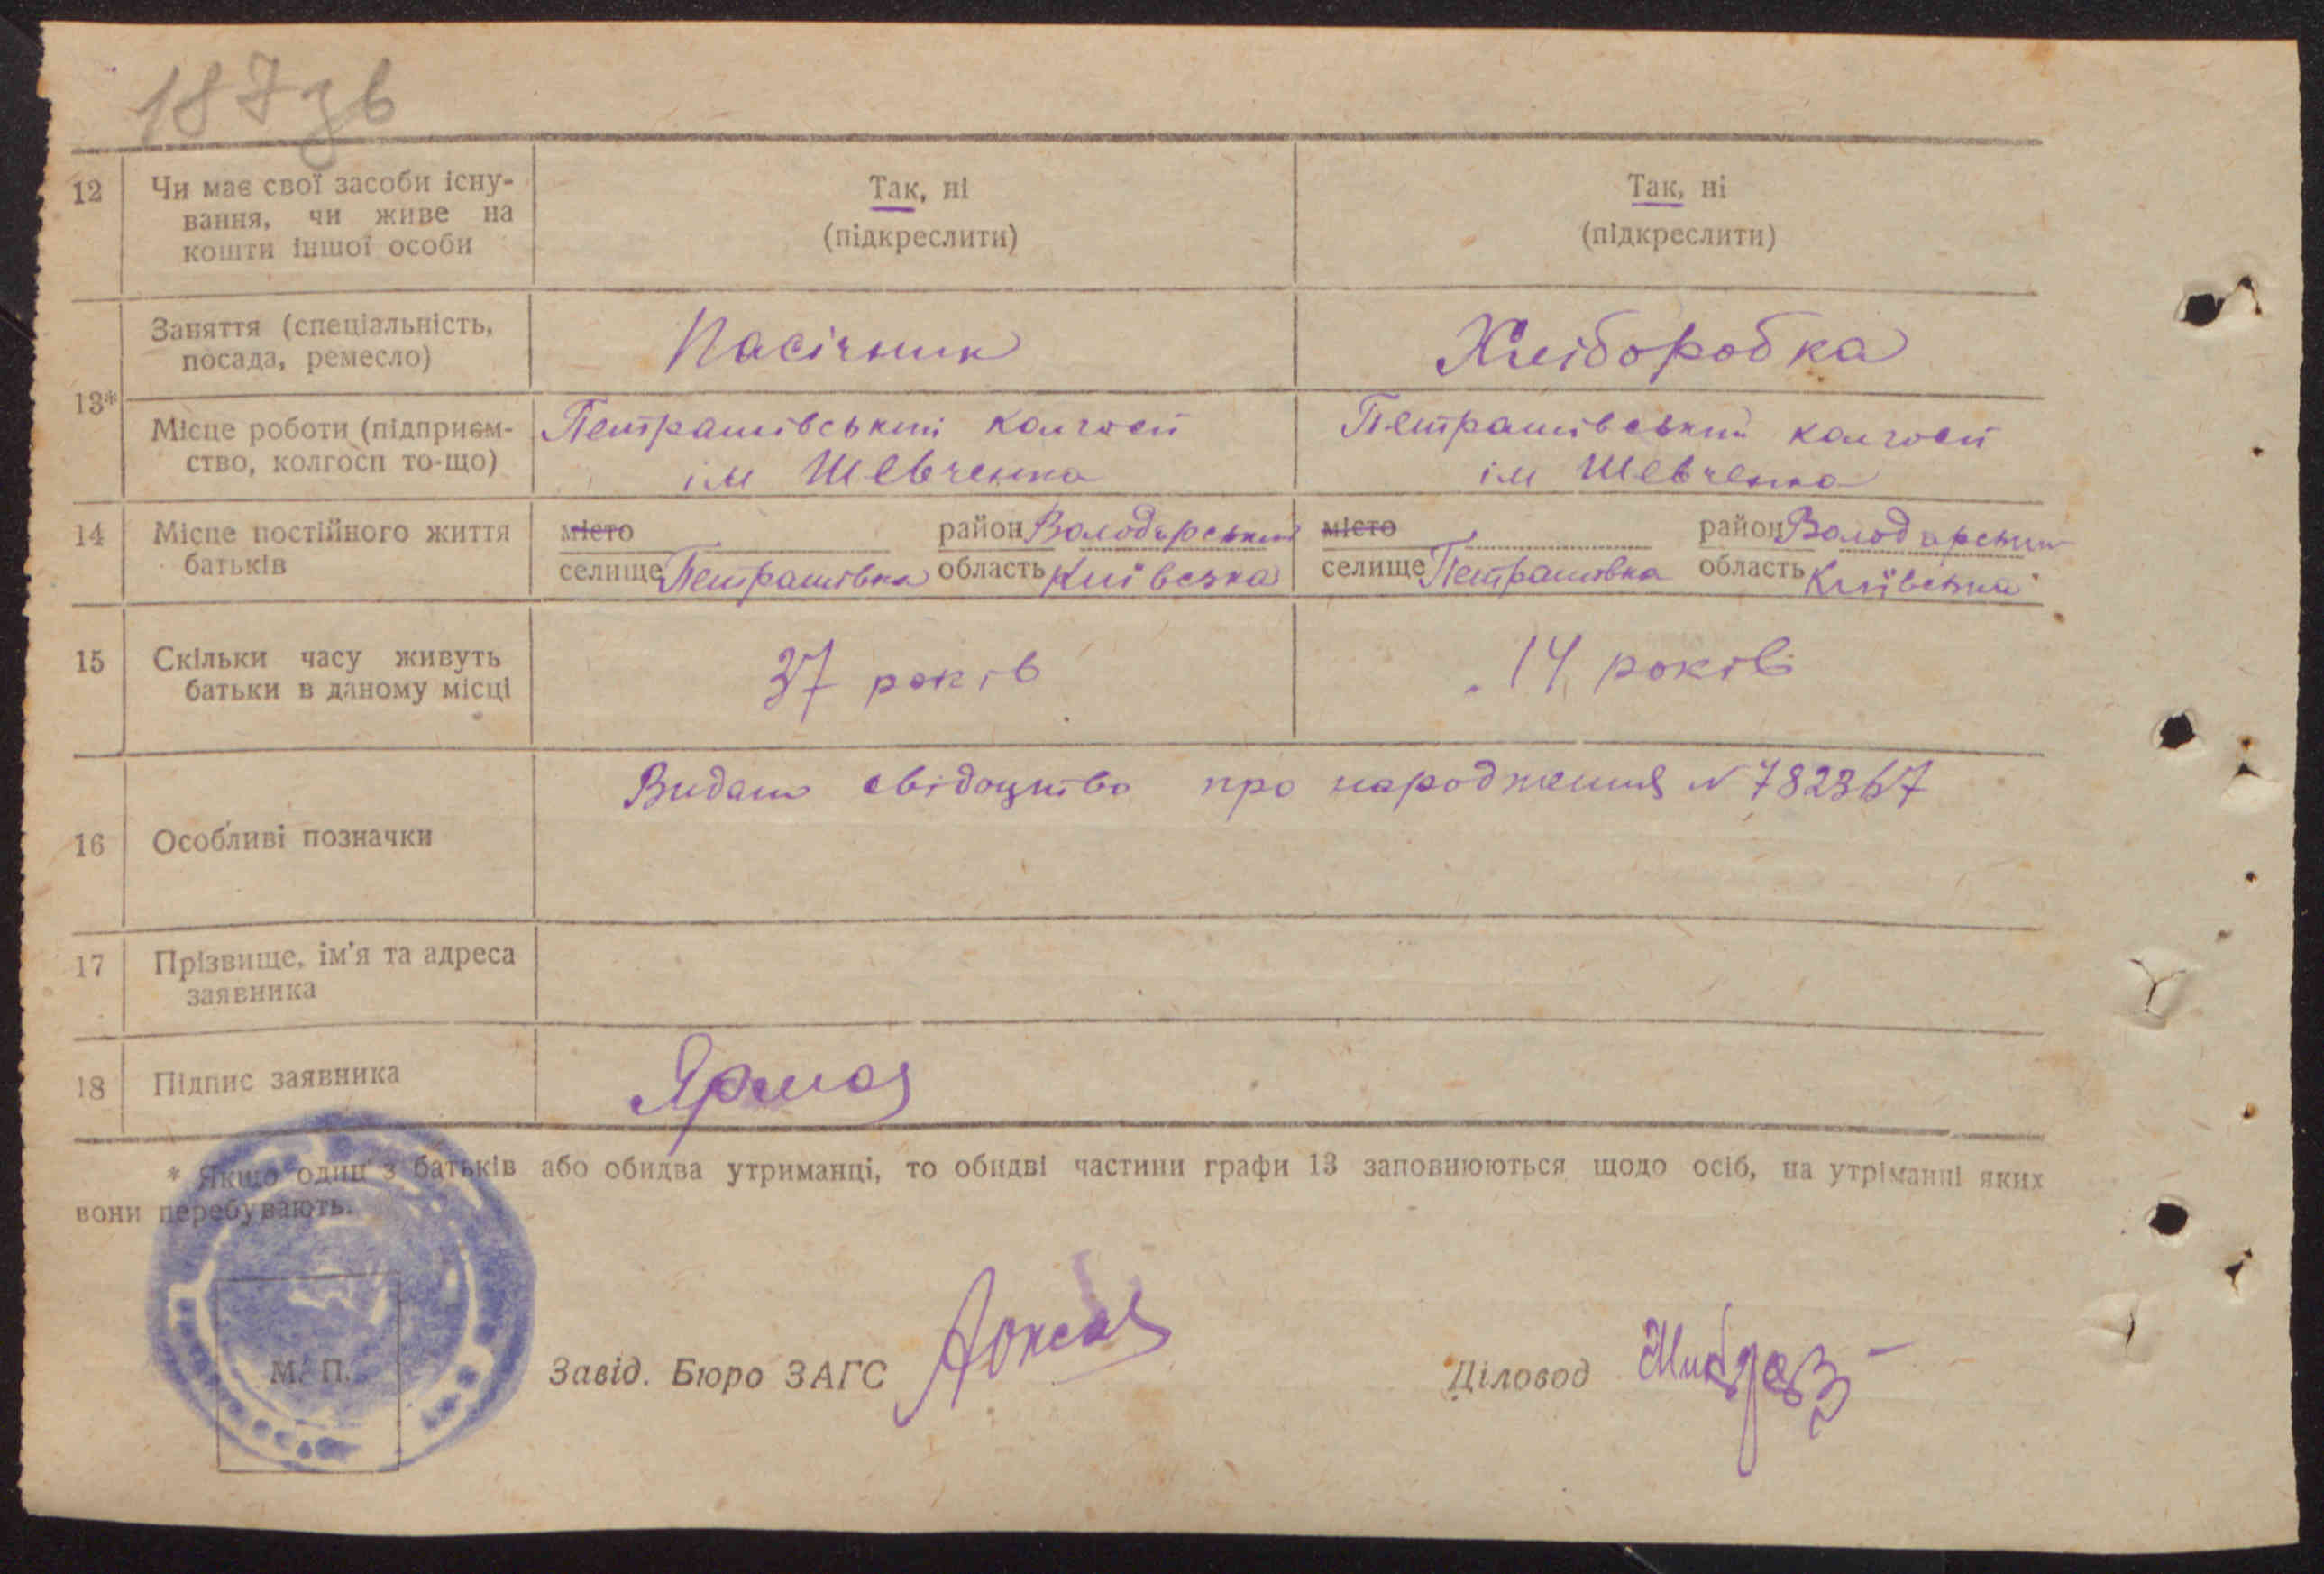 187 зв
12 Чи має свої засоби існу-
вання, чи живе на
кошти іншої особи
Так, ні
(підкреслити)
Так, ні
(підкреслити)
13*
Заняття (спеціальність,
посада, ремесло)
Пасічник
Хліборобка
Місце роботи (підприєм-
ство, колгосп то-що)
Петрашівський колгосп
ім Шевченка
Петрашівський колгосп
ім Шевченка
14 Місце постійного життя
батьків
місто район Володарський
селище Петрашівка область Київська
місто район Володарський
селище Петрашівка область Київська
15 Скільки часу живуть
батьки в даному місці
37 років
14 років
16 Особливі позначки
Видано свідоцтво про народження N 782367
17 Прізвище, ім'я та адреса
заявника
18 Підпис заявника
* Якщо один з батьків або обидва утриманці, то обидві частини графи 13 заповнюються щодо осіб, на утріманні яких
вони перебувають.
М. П.
Завід. Бюро ЗАГС
Діловод